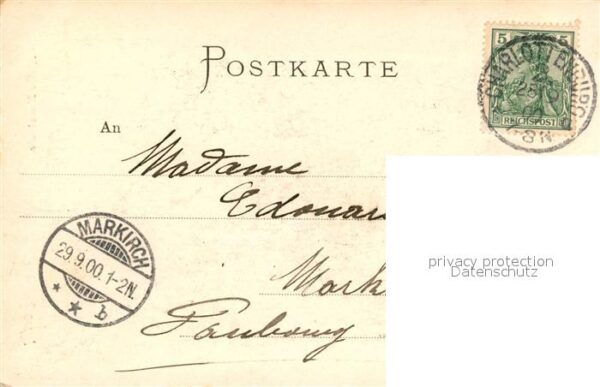 POSTKARTE
5
CHARLOTTENBURG
8N
REICHSPOST
An
Madame
Edouar
MARKIRCH
29.9.00.1-2N.
* * b
Mark
Faubourg
privacy protection
Datenschutz